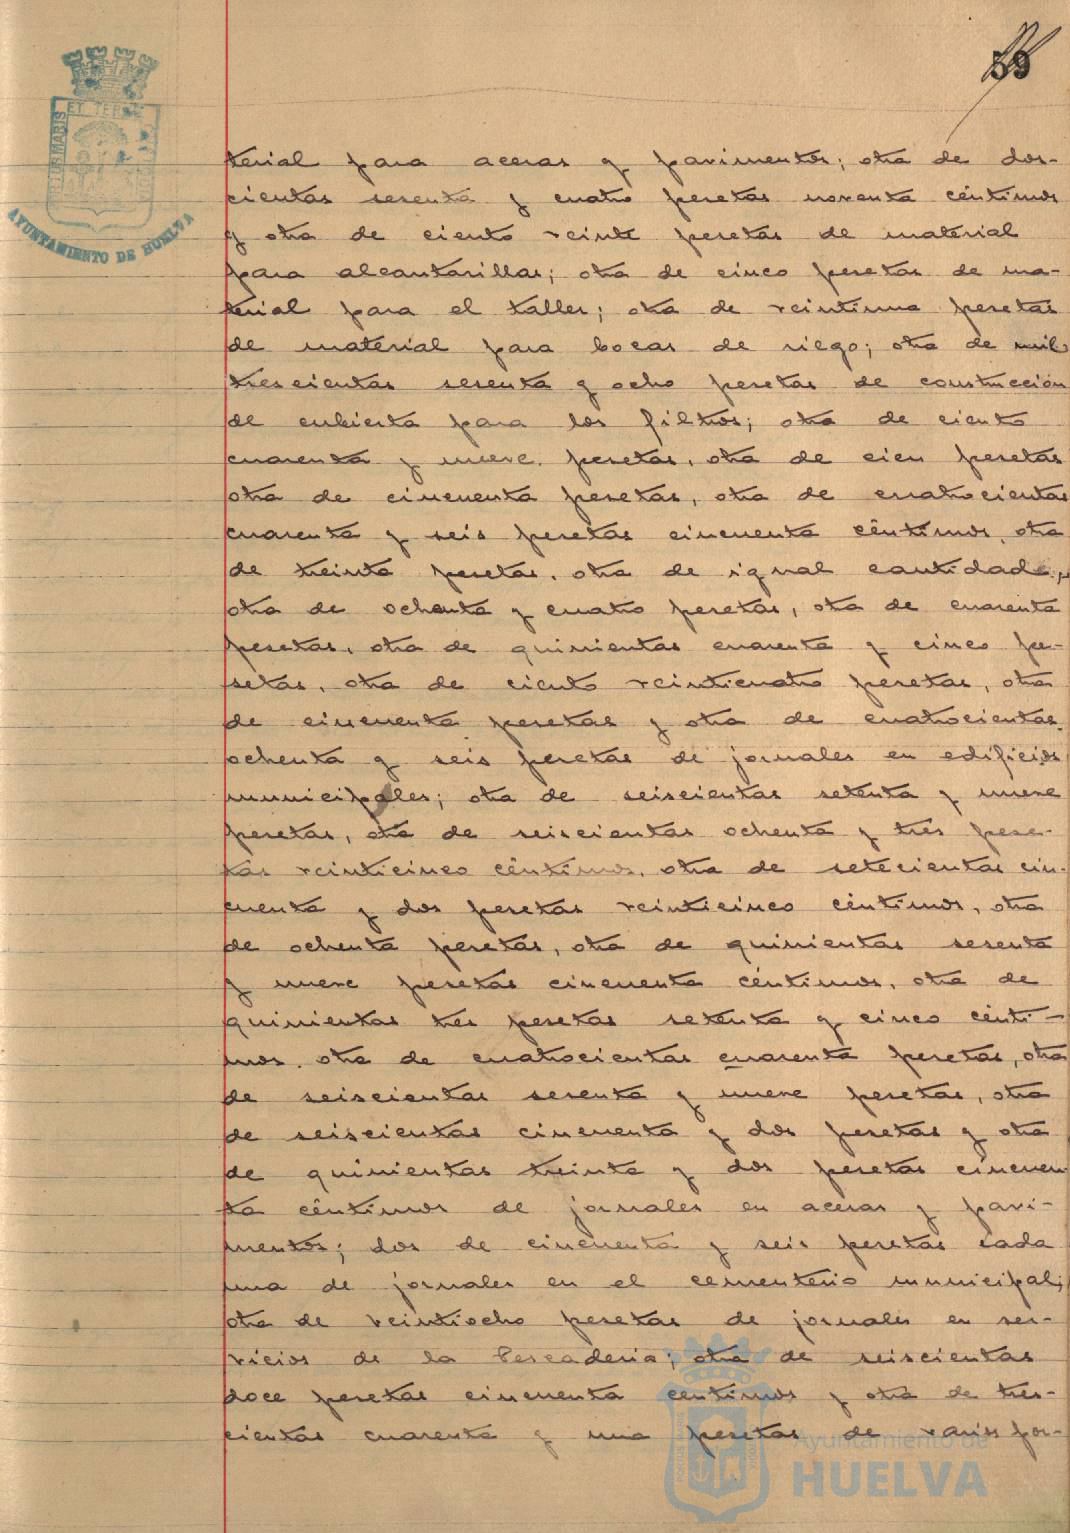 59
PORTUS MARIS ET TERRE
AYUNTAMIENTO DE HUELVA
terial para aceras y pavimentos; otra de dos-
cientas sesenta y cuatro pesetas noventa céntimos
y otra de ciento veinte pesetas de material
para alcantarillas; otra de cinco pesetas de ma-
terial para el taller; otra de veintiuna pesetas
de material para bocas de riego; otra de mil
trescientas sesenta y ocho pesetas de construcción
de cubierta para los filtros; otra de ciento
cuarenta y nueve pesetas, otra de cien pesetas
otra de cincuenta pesetas, otra de cuatrocientas
cuarenta y seis pesetas cincuenta céntimos, otra
de treinta pesetas, otra de igual cantidad,
otra de ochenta y cuatro pesetas, otra de cuarenta
pesetas, otra de quinientas cuarenta y cinco pe-
setas, otra de ciento veinticuatro pesetas, otra
de cincuenta pesetas y otra de cuatrocientas
ochenta y seis pesetas de jornales en edificios
municipales; otra de seiscientas setenta y nueve
pesetas, otra de seiscientas ochenta y tres pese-
tas veinticinco céntimos, otra de setecientas cin-
cuenta y dos pesetas veinticinco céntimos, otra
de ochenta pesetas, otra de quinientas sesenta
y nueve pesetas cincuenta céntimos, otra de
quinientas tres pesetas setenta y cinco cénti-
mos, otra de cuatrocientas cuarenta pesetas, otra
de seiscientas sesenta y nueve pesetas, otra
de seiscientas cincuenta y dos pesetas y otra
de quinientas treinta y dos pesetas cincuen-
ta céntimos de jornales en aceras y pavi-
mentos; dos de cincuenta y seis pesetas cada
una de jornales en el cementerio municipal;
otra de veintiocho pesetas de jornales en ser-
vicios de la Pescaderia; otra de seiscientas
doce pesetas cincuenta centimos y otra de tres-
cientas cuarenta y una pesetas de varios jor-
Ayuntamiento de
HUELVA